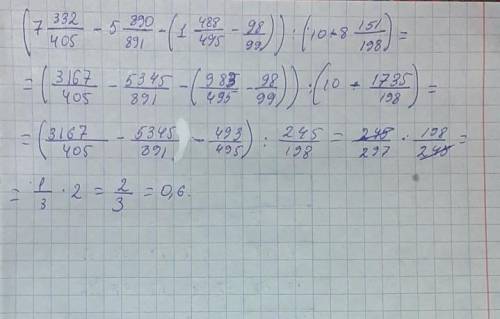 (7 332/405 - 5 890/891 - (1 488/495 - 98/99)) : (10 + 8 151/198) =
= (3167/405 - 5345/891 - (983/495 - 98/99)) : (10 - 1735/198) =
= (3167/405 - 5345/891) - 493/495) : 245/198 = 245/297 : 198/245 =
= 1/3 · 2 = 2/3 = 0,6.